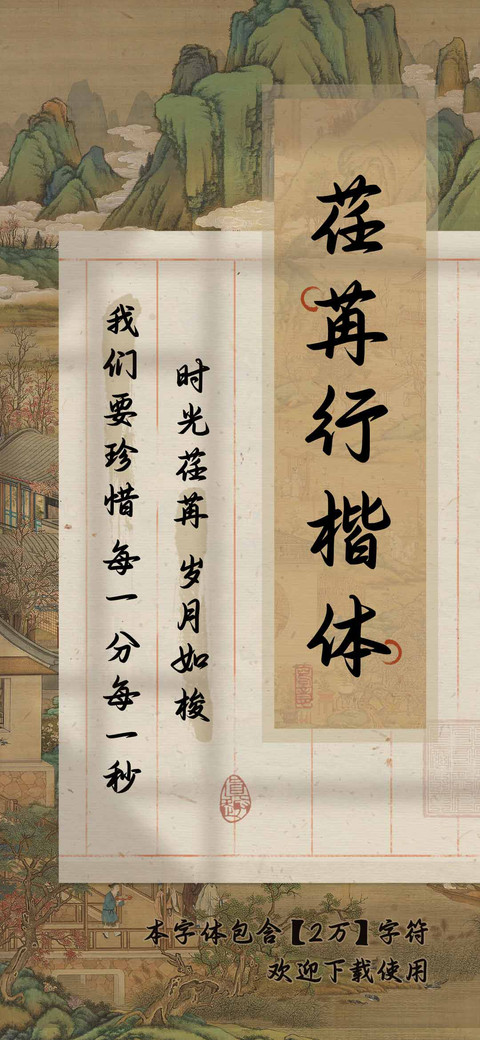 荏苒行楷体
时光荏苒 岁月如梭
我们要珍惜 每一分每一秒
本字体包含【2万】字符
欢迎下载使用